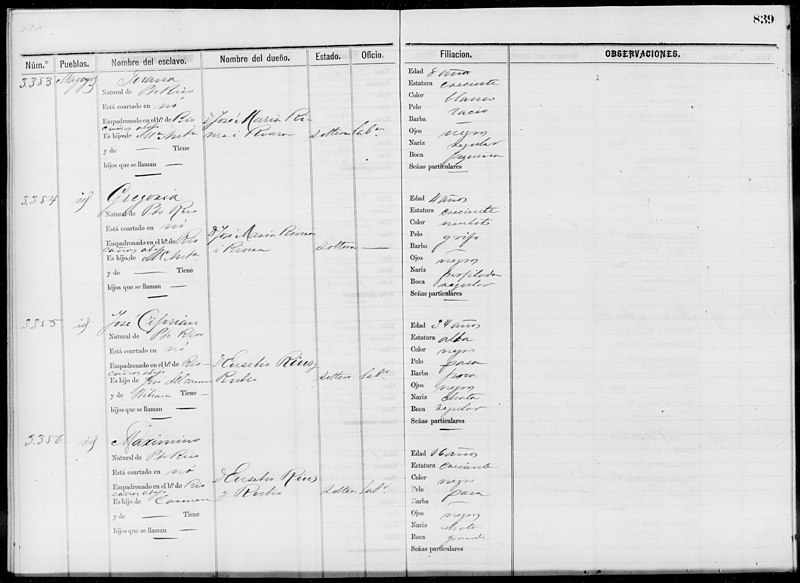 839
Núm.º Pueblos. Nombre del esclavo. Nombre del dueño. Estado. Oficio. Filiacion. OBSERVACIONES.
3.353
Natural de Pto Rico
Está coartado en nó
Empadronado en el b.º de Rio
cañas abajo
Es hijo de
y de — Tiene
hijos que se llaman —
D José Maria
i Rivera soltera lab.ª
Edad 8 años
Estatura creciente
Color blanco
Pelo lacio
Barba —
Ojos negros
Nariz regular
Boca pequeña
Señas particulares —
3354 id Gregoria
Natural de Pto Rico
Está coartado en nó
Empadronado en el b.º de Rio
cañas abajo
Es hijo de
y de — Tiene
hijos que se llaman —
D José Maria
i Rivera soltera —
Edad años
Estatura creciente
Color mulato
Pelo grifo
Barba —
Ojos negros
Nariz perfilada
Boca regular
Señas particulares —
3355 id José Ciprian
Natural de Pto Rico
Está coartado en nó
Empadronado en el b.º de Rio
cañas abajo
Es hijo de
y de Tiene —
hijos que se llaman —
D Eusebio Rius y
Rubio soltero lab.r
Edad 34 años
Estatura alta
Color negro
Pelo pasa
Barba poca
Ojos negros
Nariz chata
Boca regular
Señas particulares —
3.356 id Maximino
Natural de Pto Rico
Está coartado en nó
Empadronado en el b.º de Rio
cañas abajo
Es hijo de Carmen
y de — Tiene
hijos que se llaman —
D Eusebio Rius
y Rubio soltero lab.r
Edad 16 años
Estatura creciente
Color negro
Pelo pasa
Barba —
Ojos negros
Nariz chata
Boca grande
Señas particulares